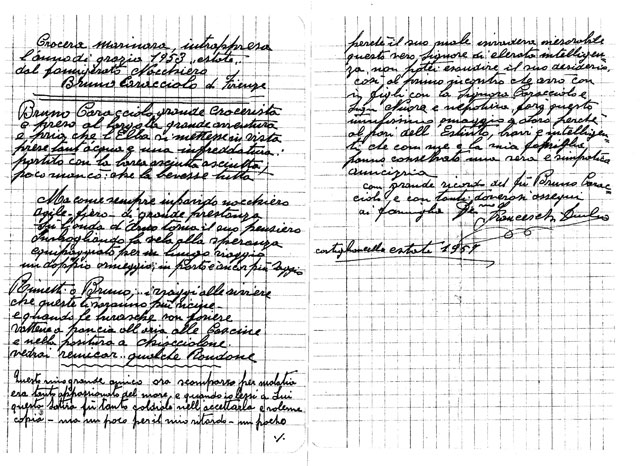 Crocera marinara, intrappresa
l'anno di grazia 1953, estate,
dal famigerato Nocchiero
Bruno Caracciolo di Firenze
Bruno Caracciolo, grande Crocerista
à preso al largo la grande
e pria che l'Elba si mettesse in vista
prese tant'acqua e una infreddatura:
partito con la barca asciutta asciutta,
poco mancò: che la bevesse tutta
Ma come sempre impavido nocchiero
agile, fiero di grande prestanza
il suo pensiero
la vela alla speranza
per un lungo viaggio
un doppio omeggio, in porto è ancor più saggio
o Bruno, ... i viaggi alle riviere
che queste ti saranno più vicine
e quando le burasche son foriere
vattene a pancia all'aria alle Cascine
e nella positura a chiocciolone
vedrai remicar .. qualche Rondone
Questo mio grande amico ora scomparso per malattia
era tanto appassionato del mare, e quando io lessi a Lui
questa satira fù tanto cordiale nell'accettarla e volerne
copia - ma un poco per il mio ritardo - un pocho
./.
perchè il suo male invadeva inesorabile
questo vero signore di elevata intelligen-
za, non potei esaudire il suo desiderio,
così al primo incontro che avrò con
i figli con la Signora Caracciolo e
Sig. Nuora e nepotina, farò questo
umilissimo omaggio a loro perchè
al pari dell'Estinto, bravi e intelligen-
ti che con me e la mia famiglia
hanno conservato una vera e simpatica
amicizia
con grande ricordo del fù Bruno Carac-
ciolo, e con tanti doverosi ossequi
ai famiglia
Franceschi
Castiglioncello estate 1957